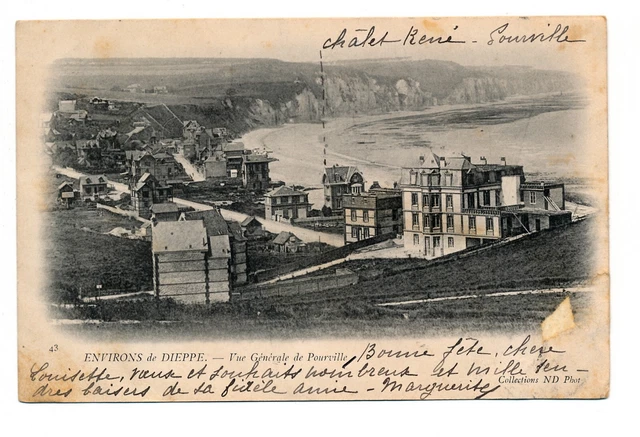 châlet René - Pourville
43
ENVIRONS de DIEPPE. — Vue Générale de Pourville
Bonne fête, chère
Louisette, vœux et souhaits nombreux et mille ten-
dres baisers de sa fidèle amie - Marguerite
Collections ND Phot